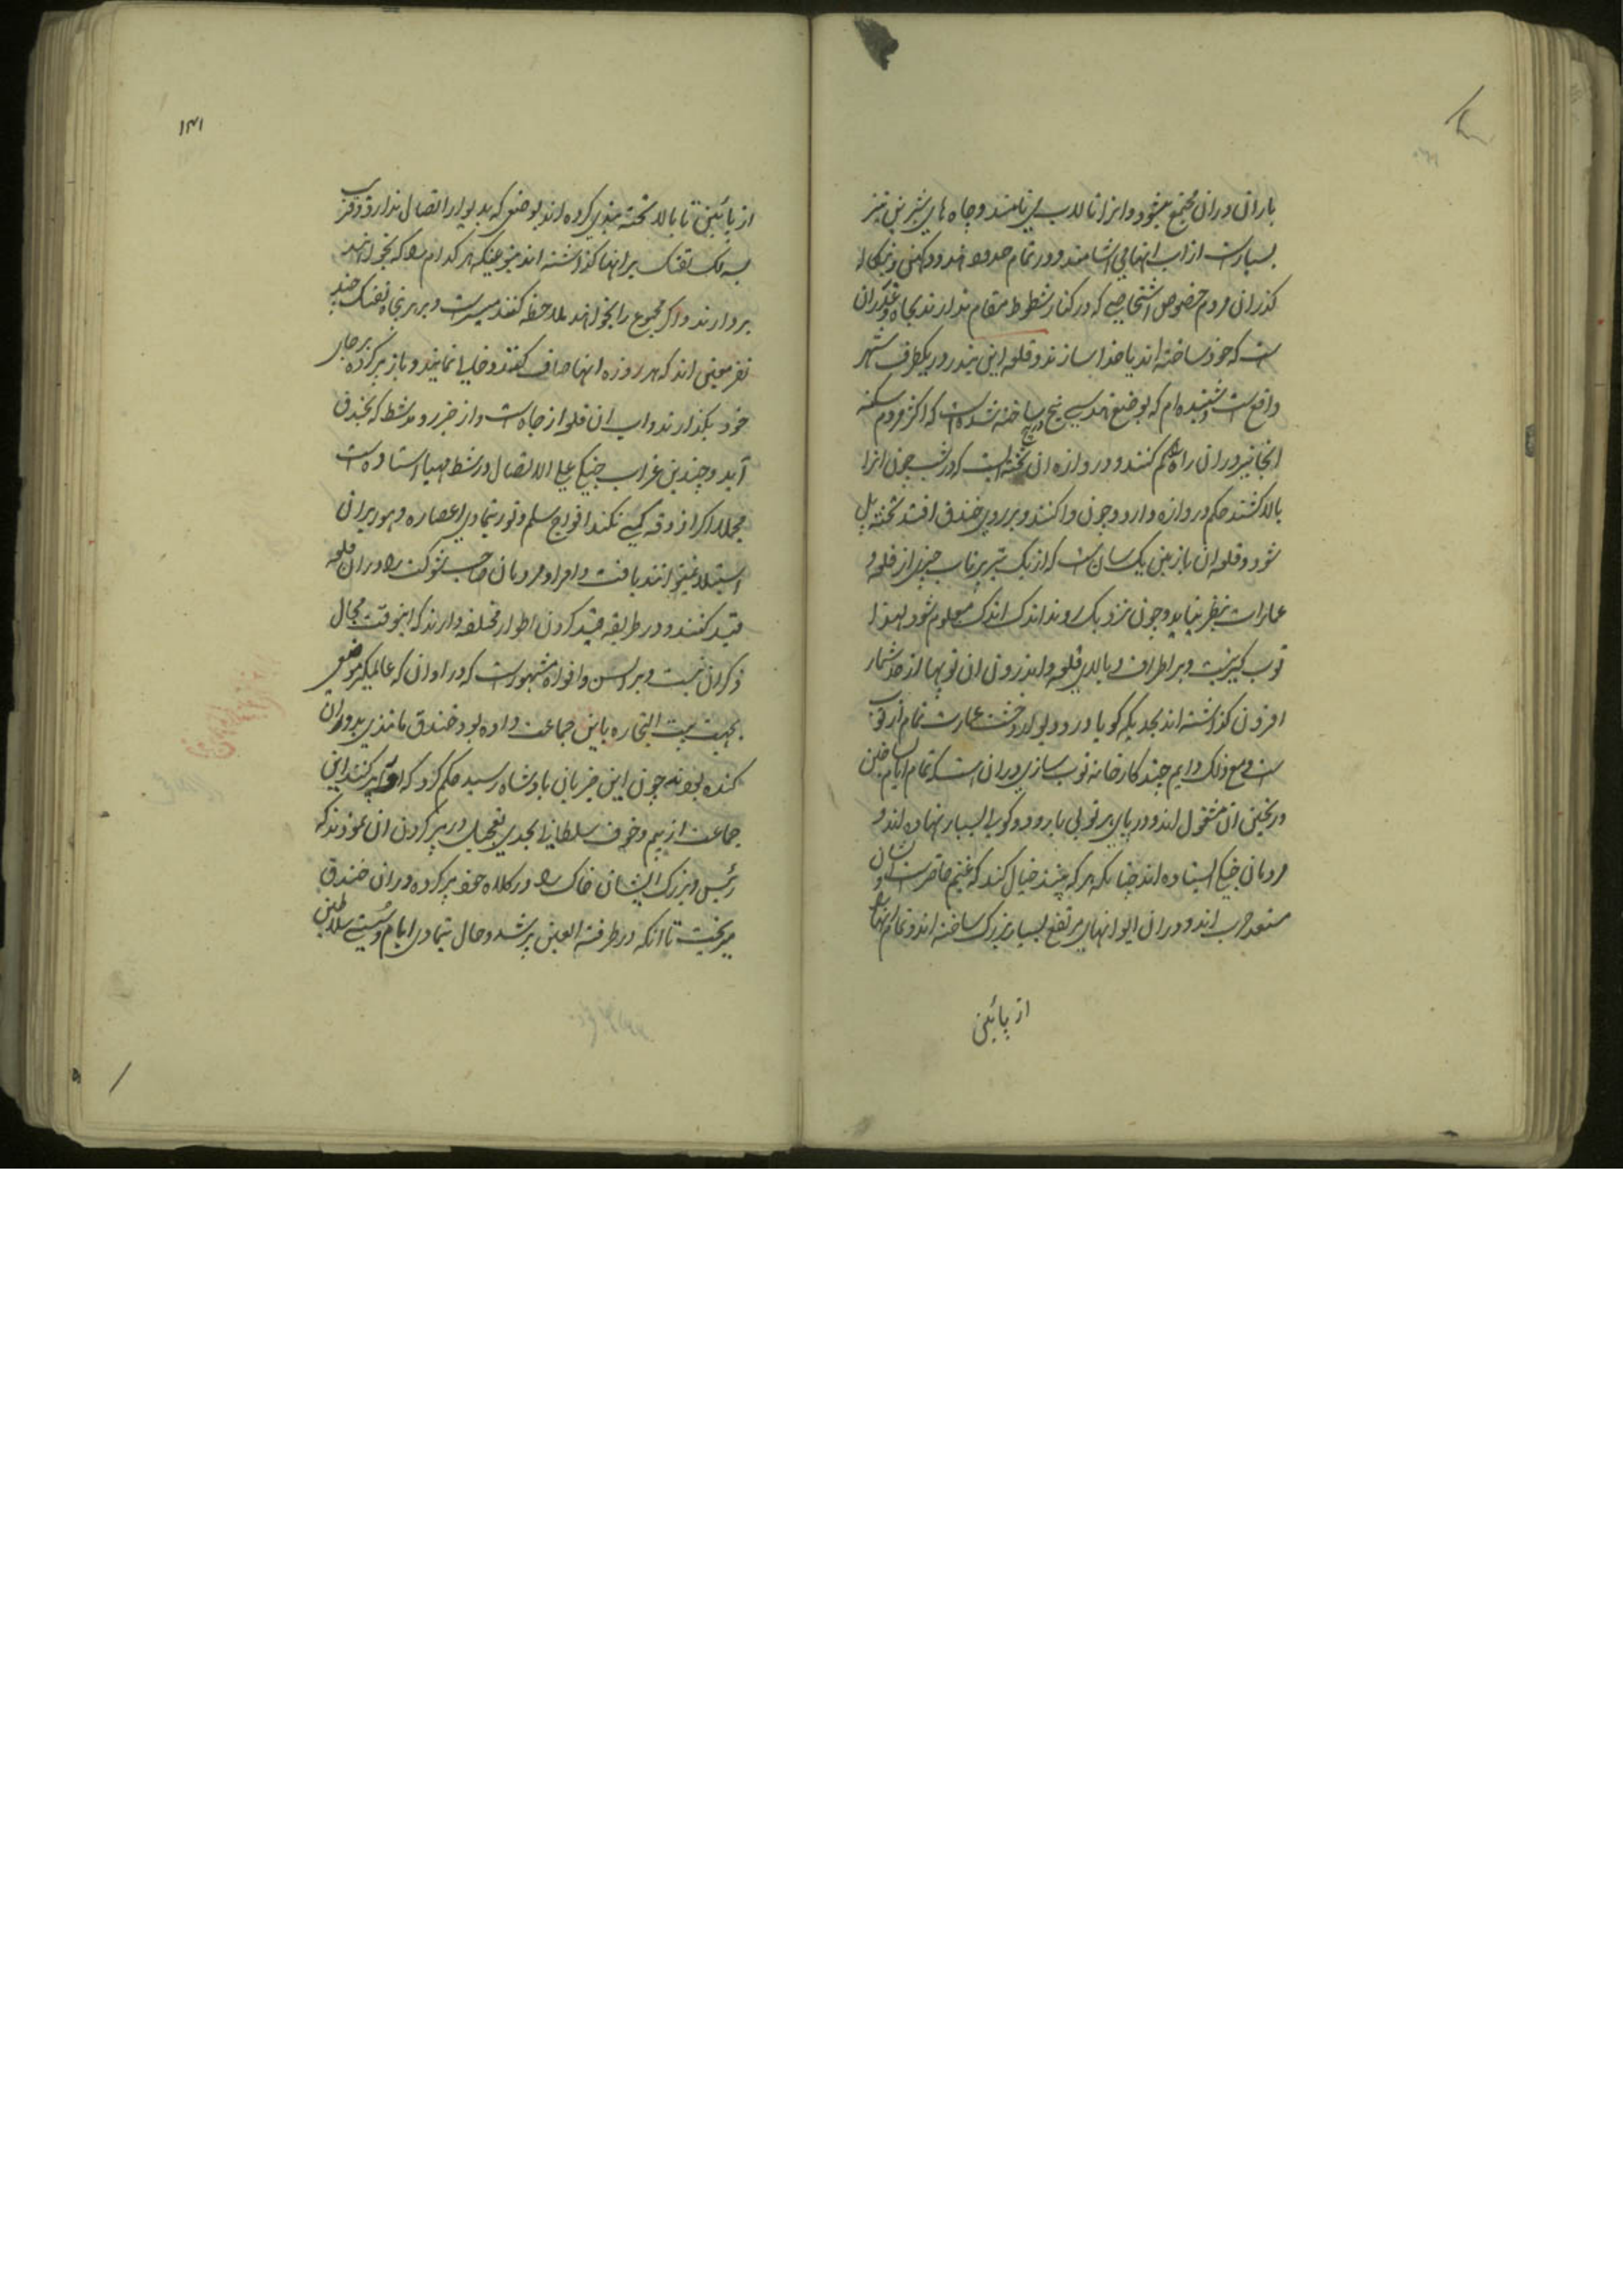 باران دران مجتمع میشود و انرا تالاب می نامند و چاه های شیرین نیز
بسیارست از اب انها می اشامند و در تمام حدود هند و دکهن و بنکاله
کذران مردم خصوص اشخاصی که در کنار شطوط مقام ندارند بچاه و غدیران
ست که خود ساخته اند یا خدا سازند و قلعه این بندر در یکطرف شهر
واقع ست و شنیده ام که بوضع هندسی پیچ در پیچ ساخته شده است که اکثر مردم سکنه
انجا نیز دران راه کم کنند و دروازه ان تخته ایست که در شب چون انرا
بالا کشند حکم دروازه دارد و چون وا کنند و بر روی خندق افتد تخته پل
شود و قلعه ان با زمین یک سان ست که از یک تیر پرتاب چیزی از قلعه و
عمارات بنظر نیاید و چون نزدیک روند اندک اندک معلوم شود لهذا
توپ کیر نیست و بر اطراف و بالای قلعه و اندرون ان توپها از حد شمار
افزون کذاشته اند بحدیکه کویا در و دیوار و خشت عمارت تمام از توپ
ست و مع ذلک دایم چند کارخانه توپ سازی دران است که تمام ایام ساختن
و ریختن ان مشغول اند و در پای هر توپی بارود و کوله بسیار نهاده اند و
مردمان جنکی ایستاده اند چنانکه هر که بیند خیال کند که غنیم حاضرست و ایشان
مستعد حرب اند و دران ایوانهای مرتفع بسیار بزرک ساخته اند و تمام انها را
از پائین
۱۳۱
از پائین تا بالا تخته بندی کرده اند بوضعی که بدیوار اتصال ندارد و قریب
به لک تفنک بر انها کذاشته اند بنوعیکه هر کدام را که بخواهند
بردارند و اکر مجموع را بخواهند ملاحظه کنند میسرست و بر هر پنجاه تفنک چند
نفر معین اند که هر روزه انها صاف کنند و خالی نمایند و باز پر کرده بر جای
خود بکذارند و اب ان قلعه از چاه است و از جزر و مد شط که بخندق
آید و چندین غراب جنکی علی الاتصال در شط مهیا استاده است
مجملا اکر اذوقه کمی نکند افواج سلم و تور بتمادی اعصار و دهور بران
استیلا نمیتوانند یافت و امرا و مردمان صاحب شوکت را دران قلعه
قید کنند و در طریقه قید کردن اطوار مختلفه دارند که اینوقت مجال
ذکر ان نیست و بر السن و افواه مشهورست که در اوان که عالمکیر موضعی
بجهت بیت التجاره باین جماعت داده بود خندق مانندی بدور ان
کنده بودند چون این خبر بان پادشاه رسید حکم کرد که انرا پر کنند این
جماعت از بیم و خوف سلطان بحدی تعجیل در پر کردن ان نمودند که
رئیس و بزرک ایشان خاک را در کلاه خود پر کرده دران خندق
میریخت تا انکه در طرفة العین پر شد و حال بتمادی ایام و سستی سلاطین